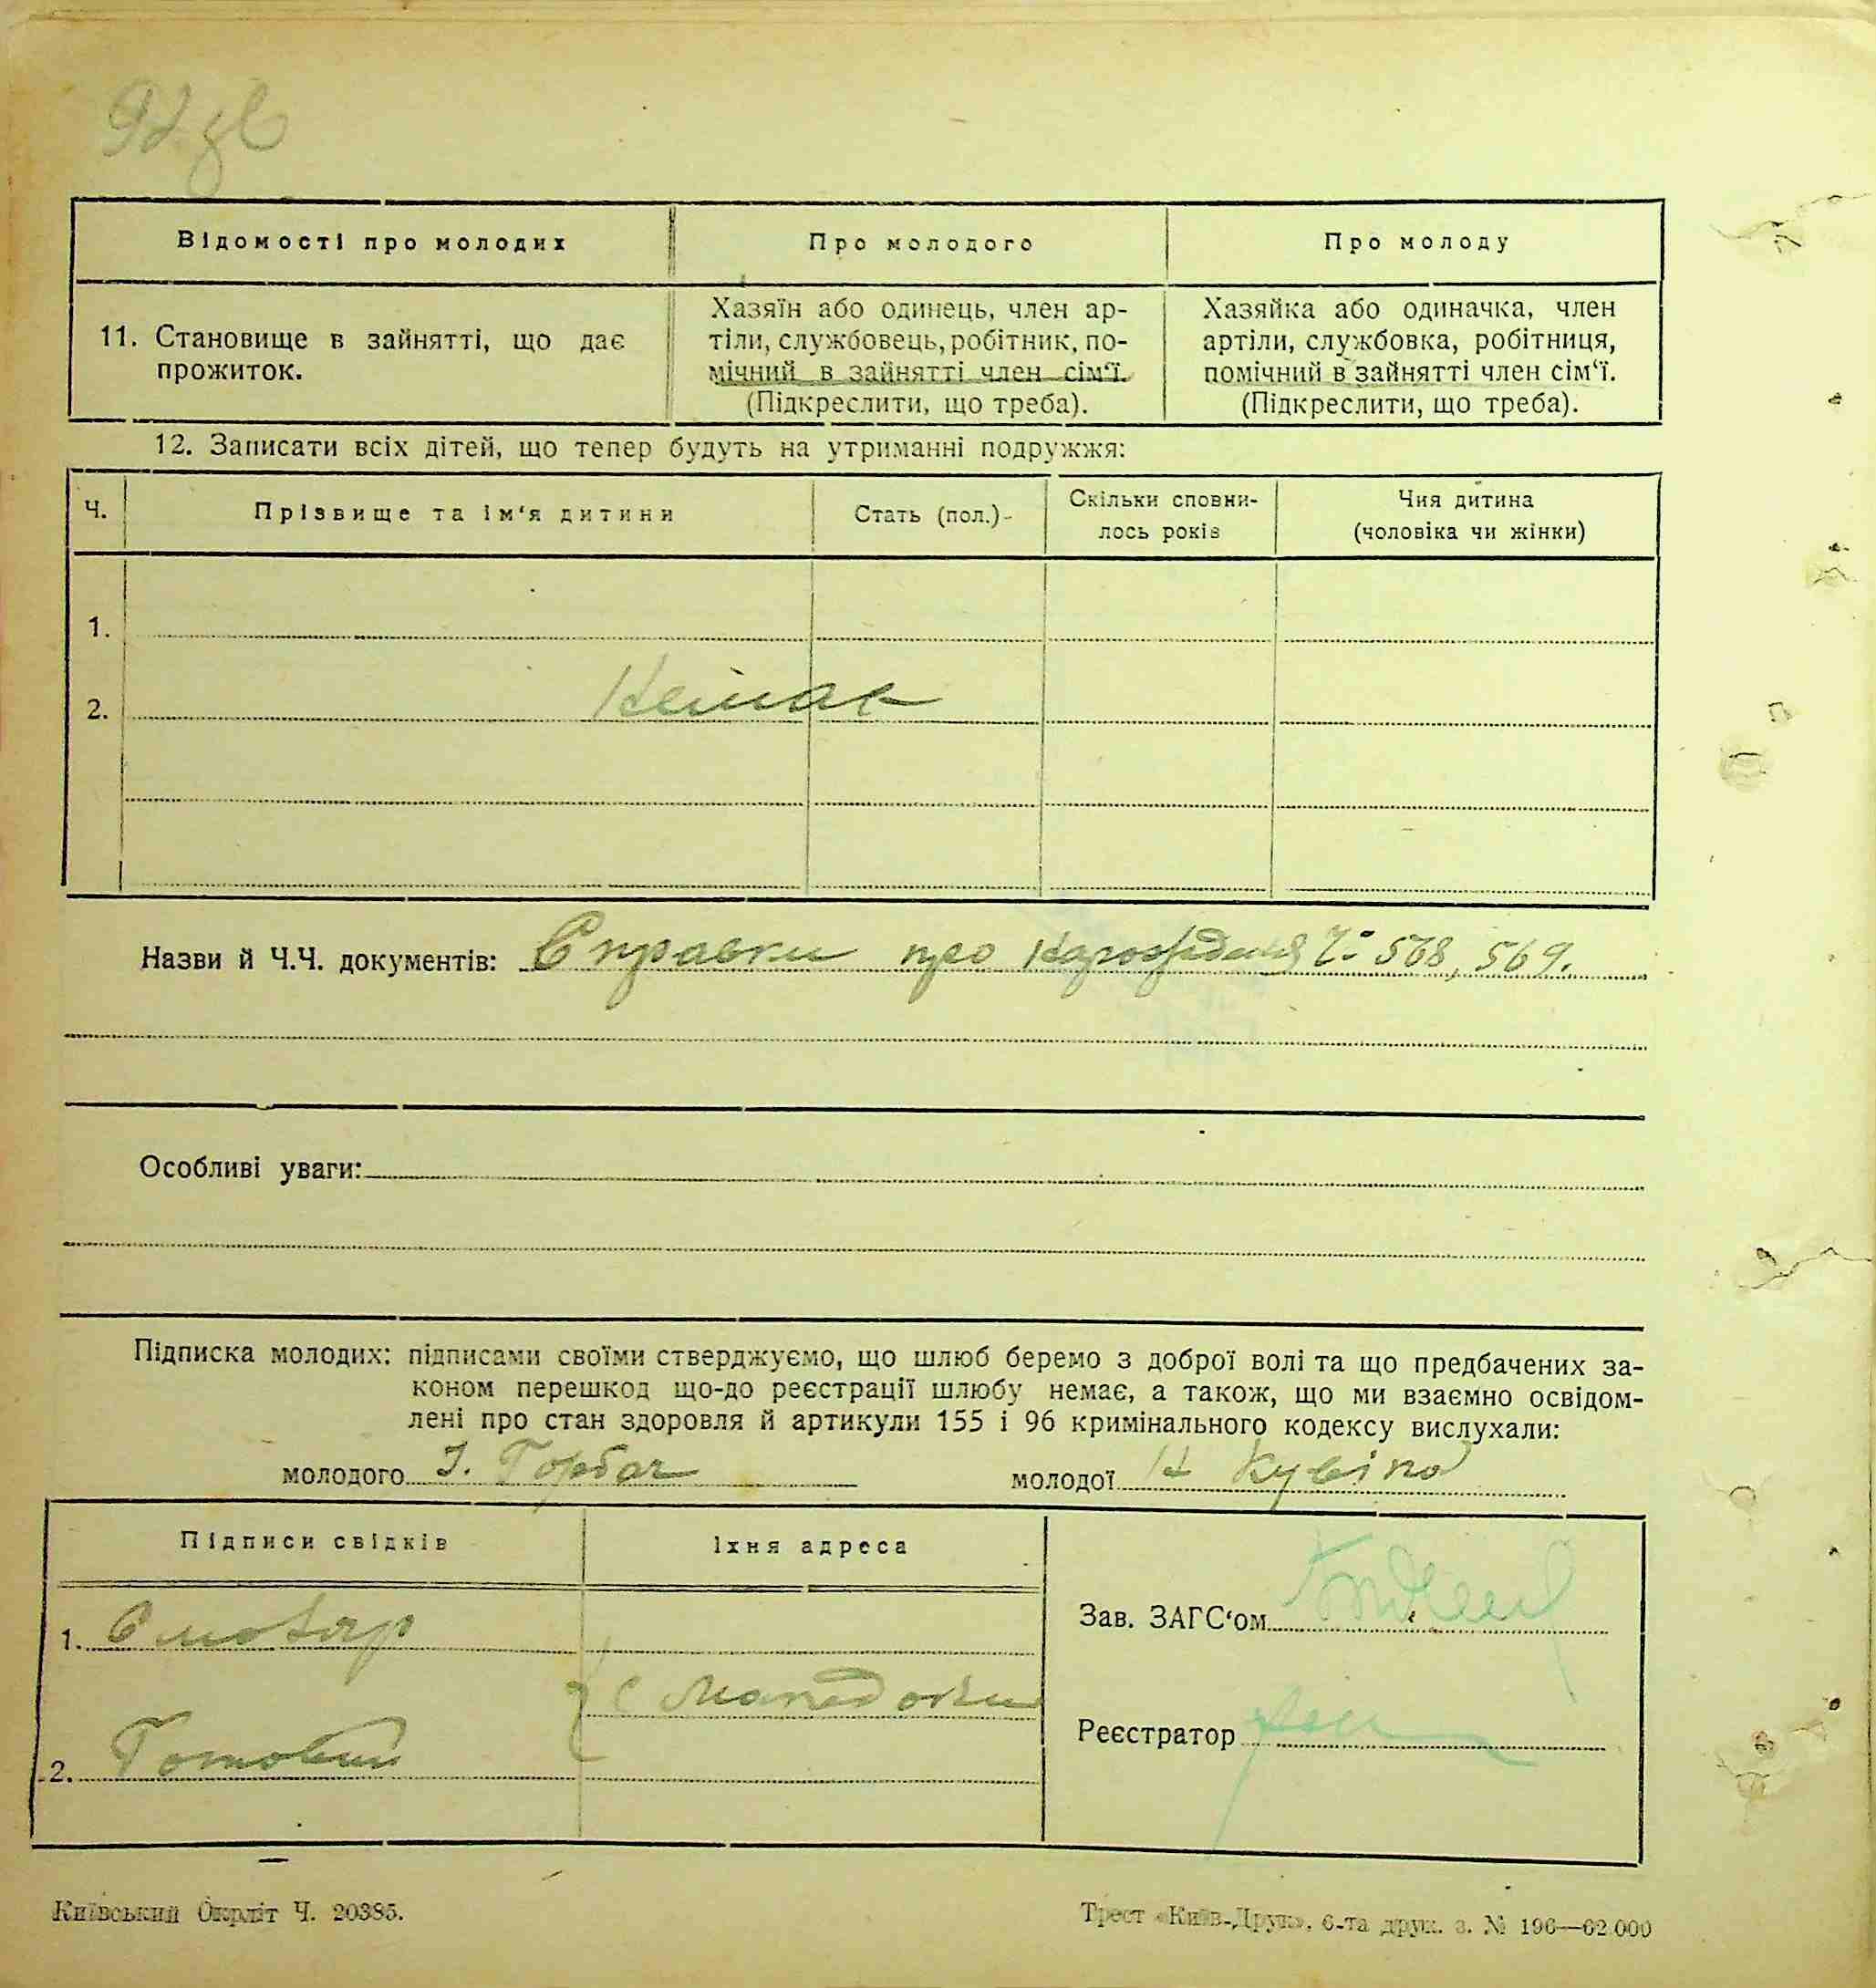 92 зв
Відомості про молодих
Про молодого
Про молоду
11. Становище в зайнятті, що дає
прожиток.
Хазяїн або одинець, член ар-
тіли, службовець, робітник, по-
мічний в зайнятті член сім‘ї.
(Підкреслити, що треба).
Хазяйка або одиначка, член
артіли, службовка, робітниця,
помічний в зайнятті член сім‘ї.
(Підкреслити, що треба).
12. Записати всіх дітей, що тепер будуть на утриманні подружжя:
Ч.
Прізвище та ім‘я дитини
Стать (пол.)
Скільки сповни-
лось років
Чия дитина
(чоловіка чи жінки)
1.
2.
Немає
Назви й Ч.Ч. документів: Справки про народження Ч: 568, 569.
Особливі уваги:
Підписка молодих: підписами своїми стверджуємо, що шлюб беремо з доброї волі та що предбачених за-
коном перешкод що-до реєстрації шлюбу немає, а також, що ми взаємно освідом-
лені про стан здоровля й артикули 155 і 96 кримінального кодексу вислухали:
молодого І. Горбач молодої Н
Підписи свідків
Їхня адреса
1.
2. Готовий
с
Зав. ЗАГС‘ом
Реєстратор
Київський Окрліт Ч. 20385.
Трест «Київ-Друк», 6-та друк. з. № 196—62.000